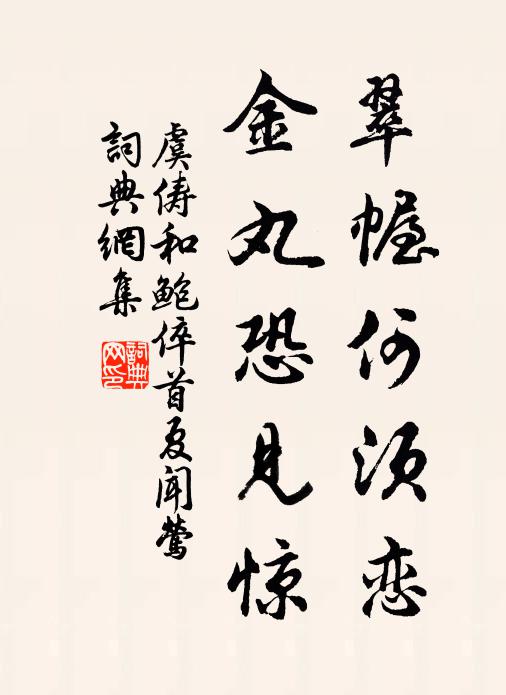 翠幄何须恋
金丸恐见惊
虞俦和鲍倅首夏闻莺
詞典網集
詞典网印